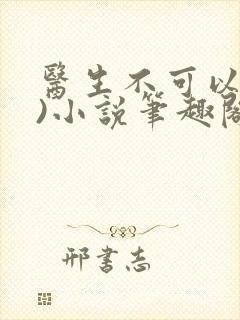 醫生不可以
)小說筆趣閣
邢書志